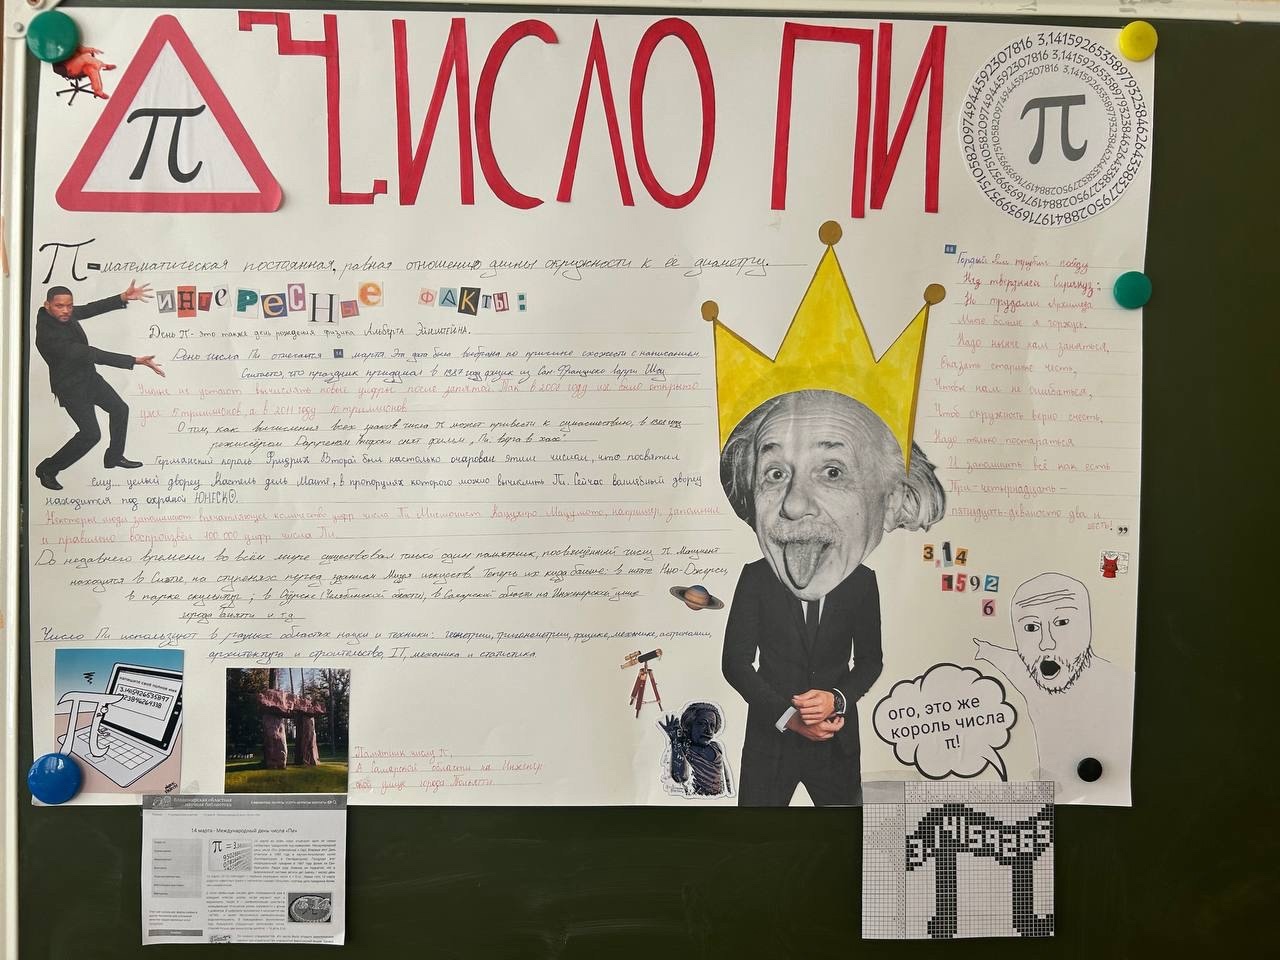 ЧИСЛО ПИ
π
π
3,14159265358979323846264338327950288419716939937510582097494459230781​6
π - математическая постоянная, равная отношению длины окружности к её диаметру.
ИНТЕРЕСНЫЕ ФАКТЫ:
День π - это также день рождения физика Альберта Эйнштейна.
День числа Пи отмечается 14 марта. Эта дата была выбрана по причине схожести с написанием
Считается, что праздник придумал в 1987 году физик из Сан-Франциско Ларри Шоу
Учёные не устают вычислять новые цифры после запятой. Так в 2008 году их было открыто
уже 5 триллионов, а в 2011 году 10 триллионов
О том, как вычисления всех знаков числа π может привести к сумасшествию, в
режиссёром снят фильм „Пи. Вера в хаос"
Германский король Фридрих Второй был настолько очарован этим числом, что посвятил
ему... целый дворец Кастель дель Монте, в пропорциях которого можно вычислить Пи. Сейчас дворец
находится под охраной ЮНЕСКО.
Некоторые люди запоминают впечатляющее количество цифр числа Пи. запомнил
и правильно воспроизвёл 100 000 цифр числа Пи
До недавнего времени во всём мире существовал только один памятник, посвящённый числу π. Монумент
находится в Сиэтле, на ступенях перед зданием Музея искусств. Теперь их куда больше: в штате Нью-Джерси,
в парке скульптур; в (Челябинской области), в Самарской области на Инженерской улице
города и т.д
Число Пи используют в разных областях науки и техники: геометрии, тригонометрии, физике, механике, астрономии,
архитектура и строительство, IT, механика и статистика.
Гордый Рим трубил победу
Над твердыней Сиракуз;
Но трудами Архимеда
Много больше я горжусь.
Надо нынче нам заняться,
Оказать старинке честь,
Чтобы нам не ошибаться,
Чтоб окружность верно счесть,
Надо только постараться
И запомнить всё как есть
Три-четырнадцать-
пятнадцать-девяносто два и
шесть!
3,14
1592
6
ого, это же
король числа
π!
напишите своё полное имя
3.1415926535897
Памятник числу π,
в Самарской области на Инженер-
ской улице города
Владимирская областная
научная библиотека
14 марта - Международный день числа «Пи»
π = 3,
3,14159265